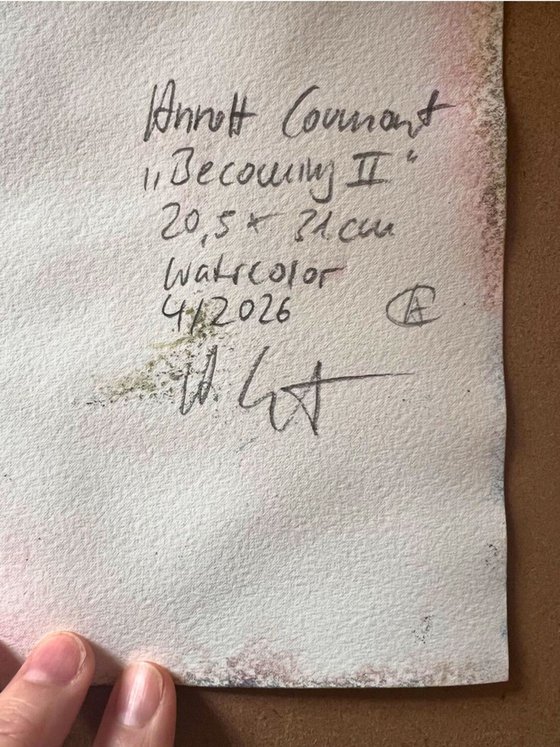 Annett
„Becoming II"
20,5 x 31 cm
Watercolor
4/2026
A